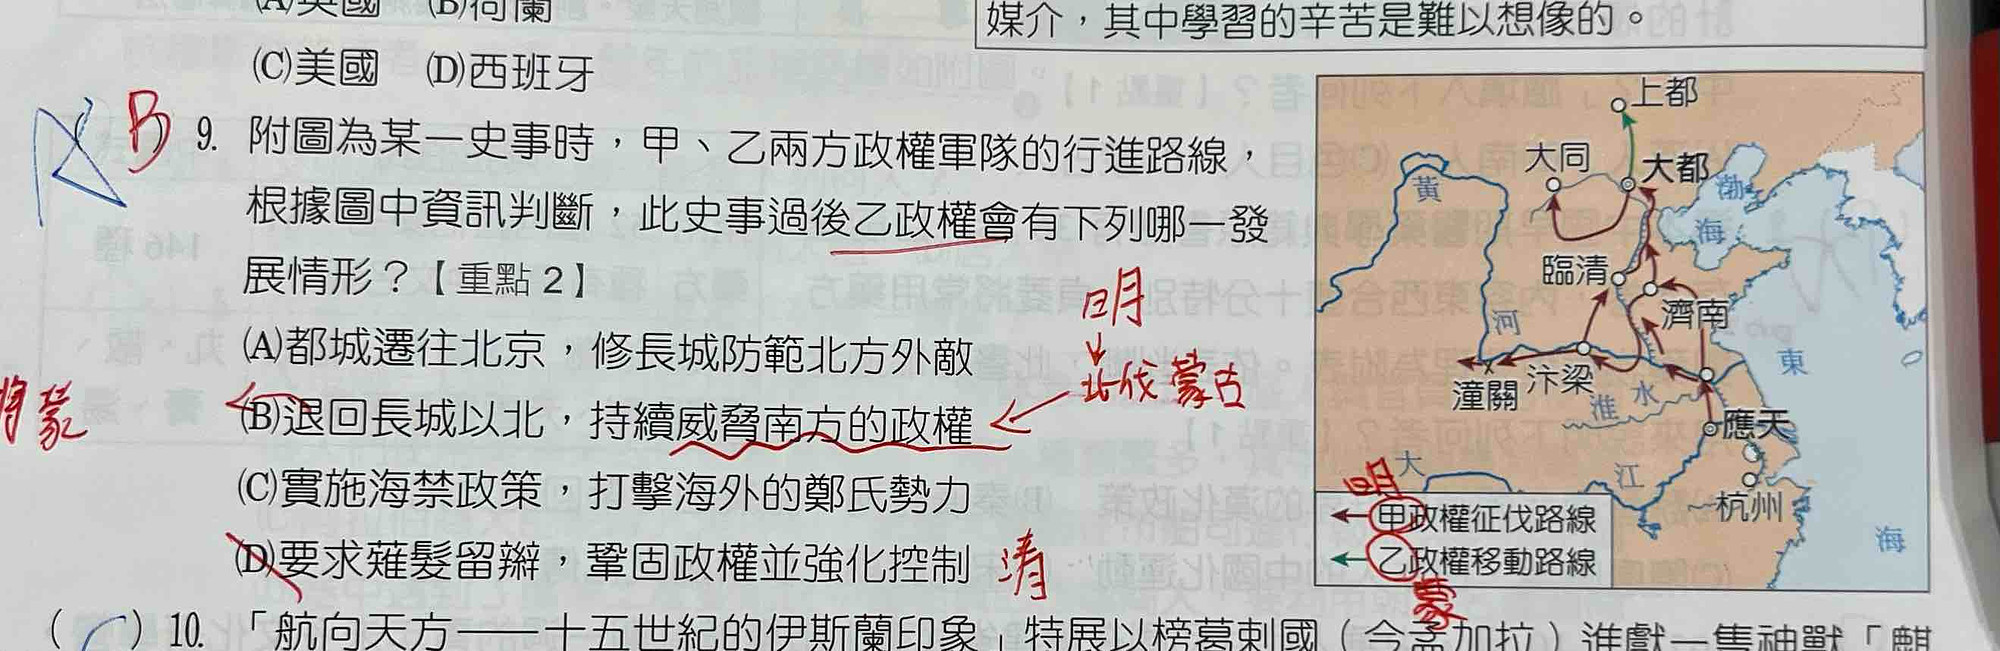 (A)英國 (B)荷蘭
(C)美國 (D)西班牙
媒介,其中學習的辛苦是難以想像的。
B
9. 附圖為某一史事時,甲、乙兩方政權軍隊的行進路線,
根據圖中資訊判斷,此史事過後乙政權會有下列哪一發
展情形?【重點 2】
(A)都城遷往北京,修長城防範北方外敵
(B)退回長城以北,持續威脅南方的政權
(C)實施海禁政策,打擊海外的鄭氏勢力
(D)要求薙髮留辮,鞏固政權並強化控制
明
北伐蒙古
蒙
清
上都
大同
大都
黃
渤
海
臨清
濟南
河
潼關
汴梁
淮
水
東
應天
大
江
杭州
海
明
甲政權征伐路線
乙政權移動路線
蒙
( ) 10. 「航向天方——十五世紀的伊斯蘭印象」特展以榜葛剌國(今孟加拉)進獻一隻神獸「麒